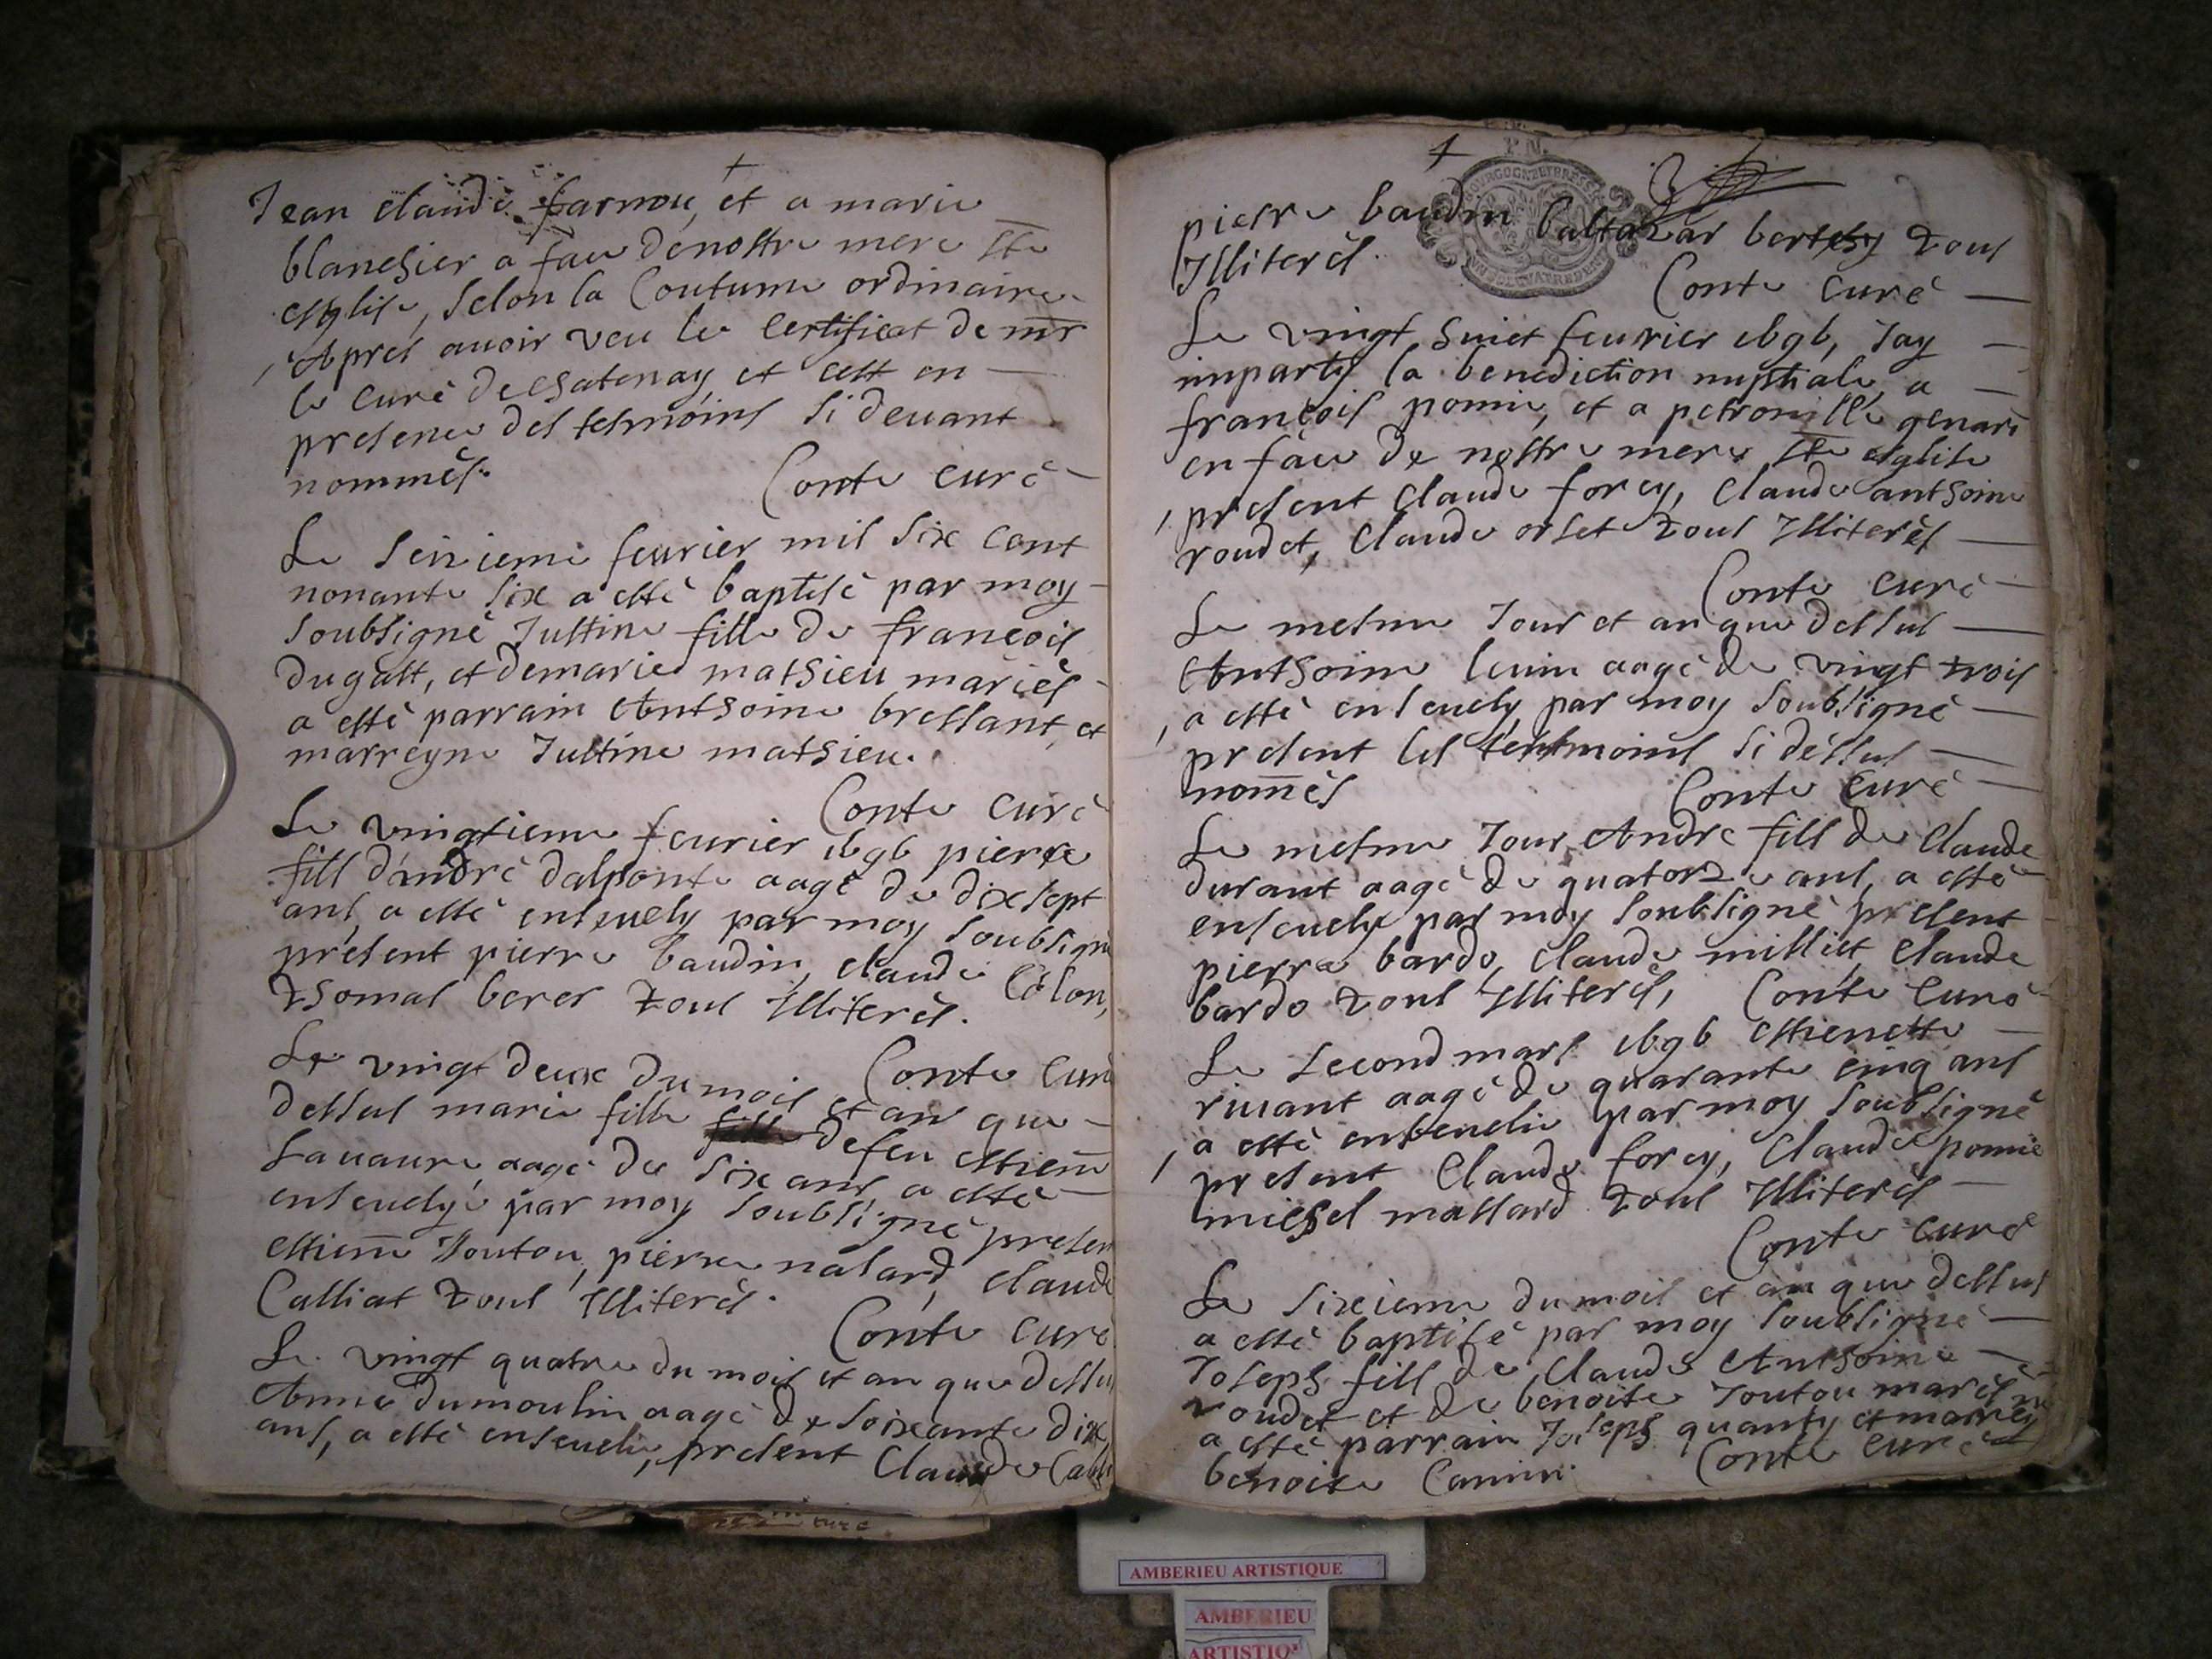 Jean claude farnou, et a marie
blanchier a face de nostre mere ste
esglise, selon la Coutume ordinaire
Apres avoir veu le Certificat de mr
le curé de chatenay, et cest en
presence des tesmoins si devant
nommés.
Conte curé
Le seizieme feurier mil six cent
nonante six a esté baptisé par moy
soubsigné Justine fille de francois
Dugast, et de marie mathieu mariés
a esté parrain Anthoine bressant, et
marreyne Justine mathieu.
Conte curé
Le vingtieme feurier 1696 pierre
fils d'andré dalponte aagé de dix sept
ans, a esté ensevely par moy soubsigné
présent pierre baudin, claude Colon,
thomas berer tous Illiterés.
Conte curé
Le vingt deux du mois et an que
dessus marie fille de feu estienne
Lavaure, aagé de six ans, a esté
ensevelye par moy soubsigné presen
estienne Joutou, pierre nalard, claude
Calliat tous Illiterés.
Conte curé
Le vingt quatre du mois et an que dessus
Anne dumoulin aagé de soixante dix
ans, a esté ensevelie, present Claude
pierre baudin baltazar berthy tous
Illiterés.
Conte curé
Le vingt huict feurier 1696, Jay
imparty la benediction nuptiale a
françois pomie, et a petronille genari
en face de nostre mere ste esglise
present Claude forey, Claude anthoine
roudet, Claude orset tous Illiterés
Conte curé
Le mesme Jour et an que dessus
Anthoine levin aagé de vingt trois
a esté ensevely par moy soubsigné
present les tesmoins si dessus
només
Conte curé
Le mesme Jour Andre fils de Claude
durant aagé de quatorze ans, a esté
ensevely par moy soubsigné present
pierre bardo, claude milliet, Claude
bardo tous Illiterés, Conte curé
Le second mars 1696 estienette
rivant aagé de quarante cinq ans
a esté ensevelie par moy soubsigné
present Claude forey, Claude pomie
michel massard tous Illiterés
Conte curé
Le sixieme du mois et an que dessus
a esté baptisé par moy soubsigné
Joseph fils de Claude Anthoine
roudet et de benoite Joutou mariés
a esté parrain Joseph quanty et marrey
benoite Camin. Conte curé
AMBERIEU ARTISTIQUE
AMBERIEU
ARTISTIQ